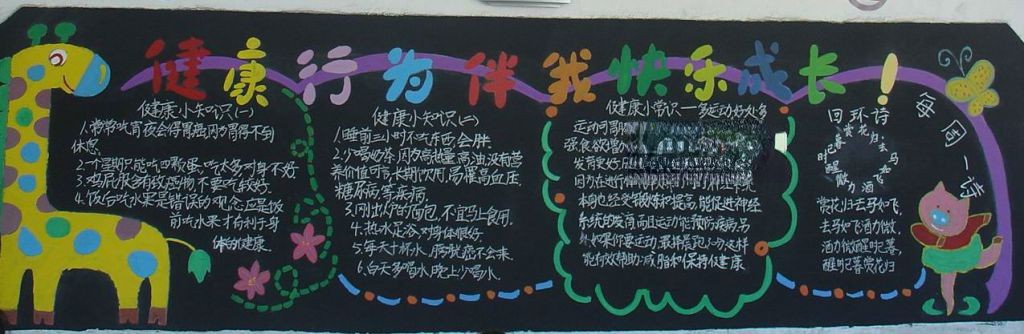 健康行为伴我快乐成长！
健康小知识(一)
1.常常吃宵夜会得胃癌,因为胃得不到
休息.
2.一个星期只能吃四颗蛋,吃太多对身不好
3.鸡屁股有致癌物不要吃较好.
4.饭后吃水果是错误的观念,应是饭
前吃水果才有利于身
体的健康
健康小知识(二)
1.睡前三小时不吃东西会胖.
2.少喝奶茶,因为高热量高油,没有营
养价值可言,长期饮用,易罹高血压.
糖尿病,等疾病.
3.刚出炉的面包,不宜马上食用.
4.热水足浴对身体很好
5.每天十杯水,膀胱癌不会来.
6.白天多喝水,晚上少喝水.
健康小常识——多运动好处多
运动可
强食欲
发育更好
因为在进行
本身也经受锻炼和提高,能促进神经
系统的发育,而且运动能预防疾病,另
外,如果你要运动,最好是跑步,这样
能有效帮助减脂和保持健康
回环诗
赏花归去马如飞酒力微醒时已暮
赏花归去马如飞,
去马如飞酒力微,
酒力微醒时已暮,
醒时已暮赏花归
每周一诗